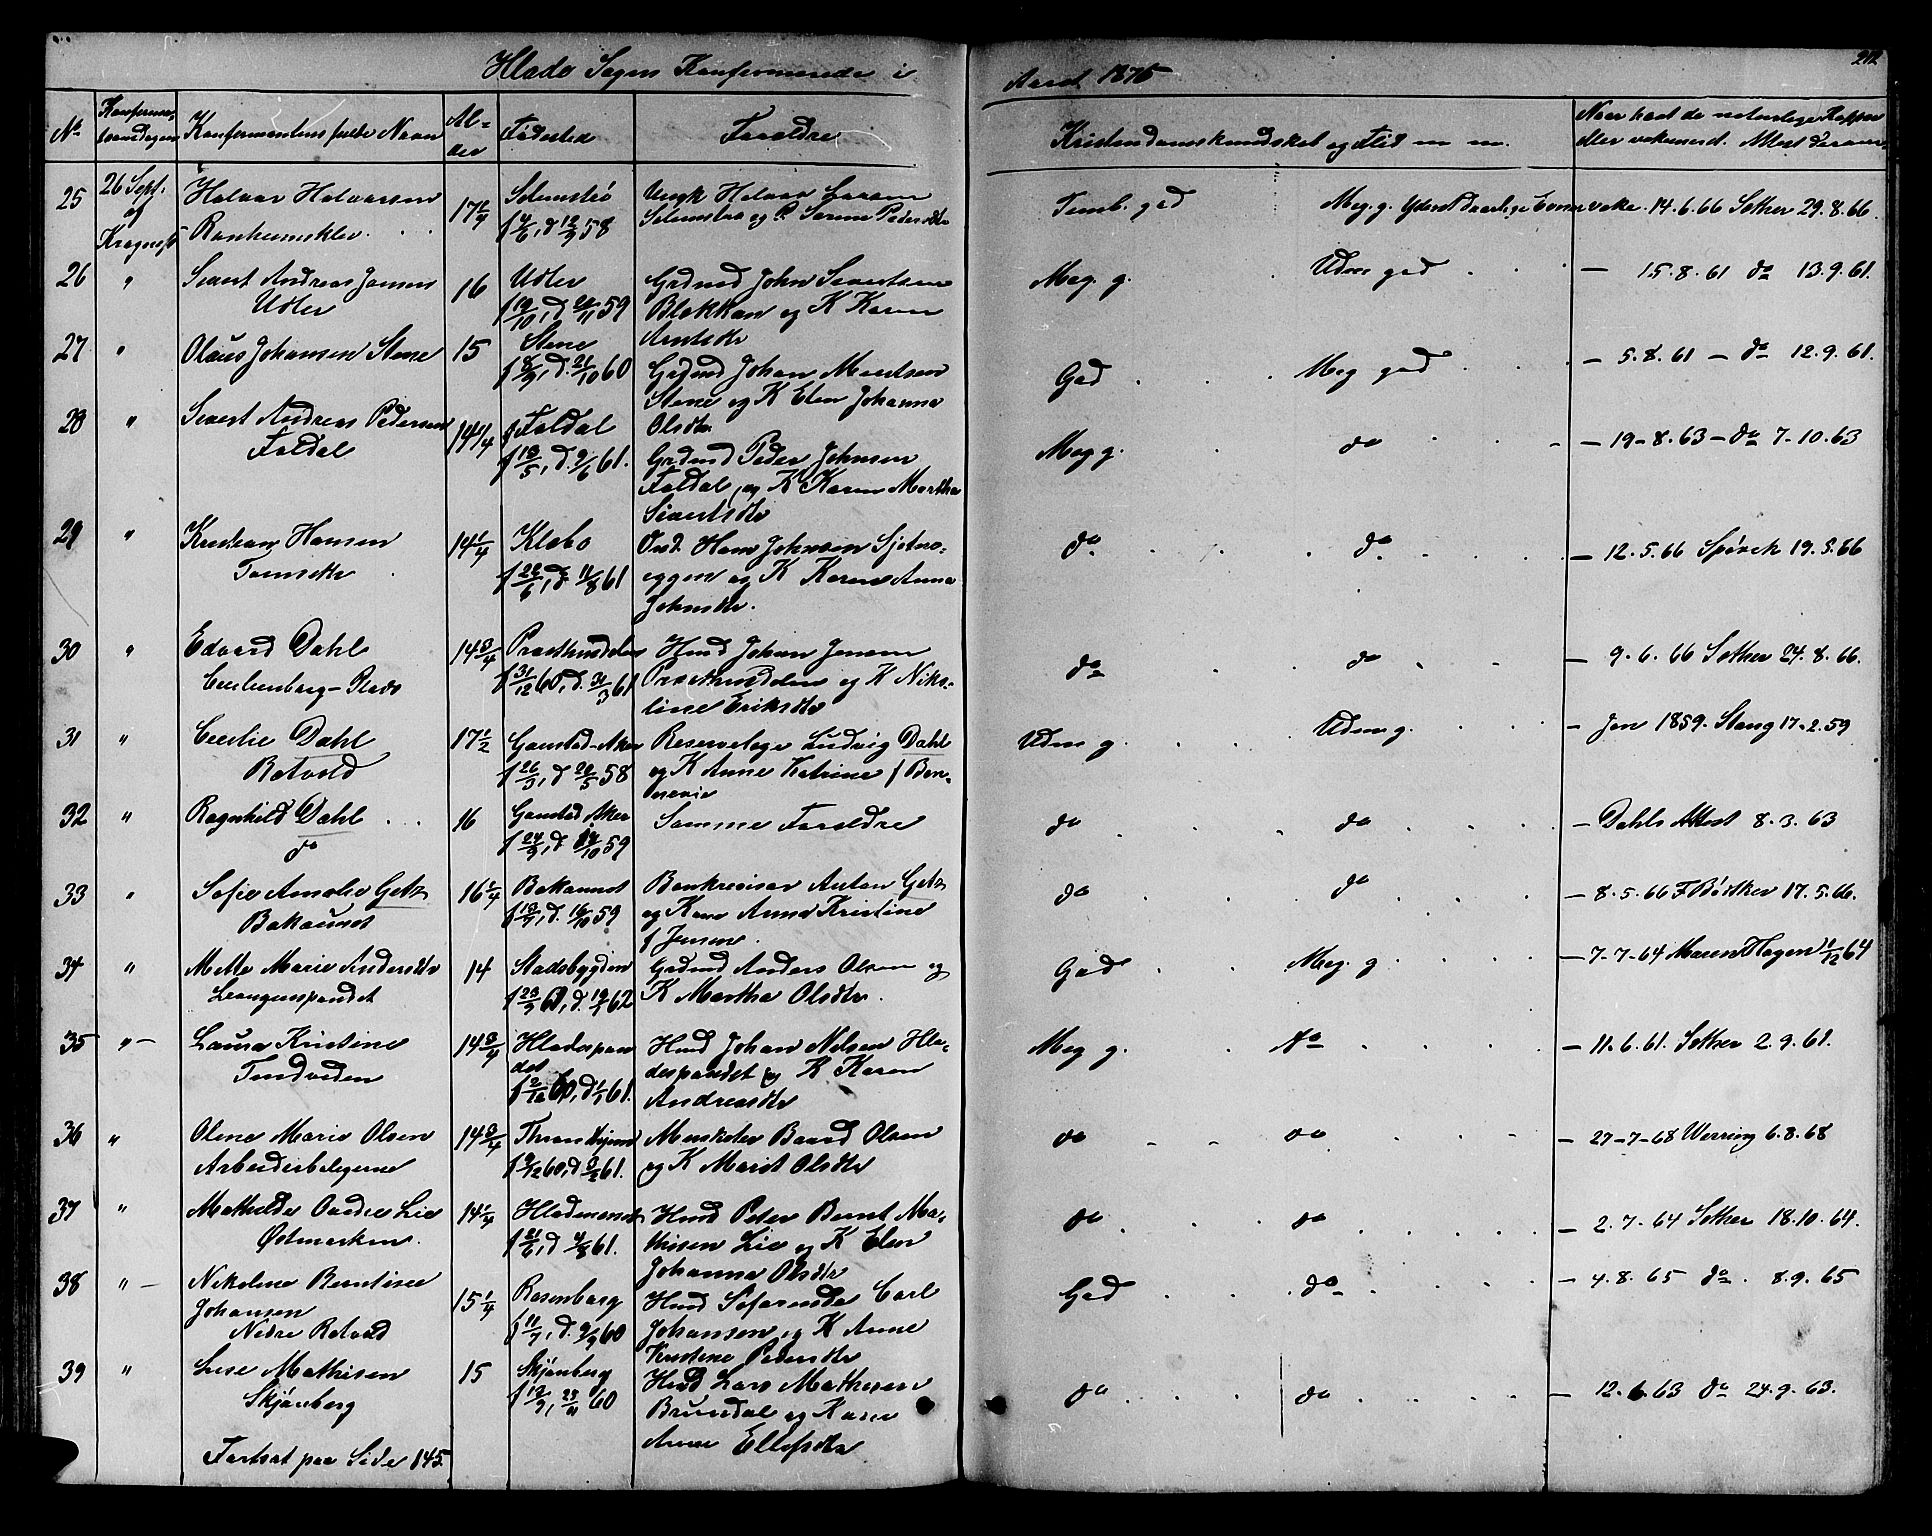 Hlade Sogns Konfirmerede i Aaret 1875
212
No
Konfirma-
tionsdagen
Konfirmantens fulde Navn
Al-
der
Fødested
Forældre
Kristendomskundskab og Flid m. m.
Naar havt de naturlige Kopper
eller vakcinerd. Attest derover
25
26 Sept.
af
Halvor Halvorsen
Ranheimsklev
17 1/4
f 4/6, d 12/9 58
Ungk Halvor Larsen
og P. Serine Pedersdtr
Temb. god
Meg. g.
vakc. 14.6.66 Sother 29.8.66.
26
"
Sivert Andreas Jensen
Udler
16
Udler
f 19/10, d 20/11 59
Grdmd John Sivertsen
Blekkan og K Karen
Arntsdtr
Meg. g.
Udm god
— 15.8.61 do 13.9.61.
27
"
Olaus Johansen Stene
15
Stene
f 8/9, d. 21/10 60
Grdmd Johan
Stene og K Elen Johanna
Olsdtr
God
Meg god
— 5.8.61 — do 12.9.61.
28
"
Sivert Andreas Pedersen
Foldal
14 1/4
Foldal
f 13/5, d. 9/6 61.
Grdmd Peder Johnsen
Foldal og K Karen Martha
Sivertsdtr
Meg g.
do
— 19-8.63 — do 7-10.63
29
"
Kristian Hansen
14 1/4
Klebo
f 22/6, d. 11/8 61
Hans Johnsen Sjetno-
eggen og K Karen Anna
Johnsdtr.
do
do
— 12.5.66 Spörck 19.5.66
30
"
Edvard Dahl
14 3/4
f 31/12 60, d. 31/3 61
Hmd Johan Jensen
og K Niko-
line Eriksdtr
do
do
— 9.6.66 Sother 24.8.66.
31
"
Cecilie Dahl
Rotvold
17 1/2
Gaustad-Aker
f 26/3, d 20/5 58
Reservelæge Ludvig Dahl
og K Anne Katrine f Bon-
nevie
Udm g.
Udm g.
— Jan 1859. Stang 17-2.59
32
"
Ragnhild Dahl
do
16
Gaustad Aker
f 24/9, d 14/10 59
Samme Forældre
do
do
— Dahls Attest 8.3.63
33
"
Sofie Amalie Getz
Bakaunet
16 1/4
Bakaunet
f 13/7, d. 16/10 59
Bankrevisor Anton Getz
og Kone Anna Kristine
f Jensen.
do
do
— 8.5.66 F Bödtker 17.5.66.
34
"
Mette Marie Andersdtr
14
Stadsbygden
Grdmd Anders Olsen og
K Martha Olsdtr.
God
Meg. g
— 7-7-64 Maren Hagen 1/12 64
35
" —
Laura Kristine
Tindveden
14 3/4
Hladespan
det
f 2/12 60, d 1/1 61.
Hmd Johan Nilsen Hla-
despandet og K Karen
Andreasdtr
Meg g.
do
— 11.6.61. Sother 2.9.61.
36
"
Olena Marie Olsen
Arbeiderboligerne
14 3/4
Throndhjem
f 9/12 60, d 3/2 61.
Murskoler Baard Olsen
og K Marit Olsdtr
do
do
— 27-7-68 Werring 6.8.68
37
"
Mathilde Lie
Østmarken.
14 1/4
Hlademoen
f 21/6, d 4/8 61.
Hmd Peter Bernt Ma-
thisen Lie og K Elen
Johanna Olsdtr
do
do
— 2.7-64 Sother 18.10.64.
38
" —
Nikoline Berntine
Johansen
Nedre Rotvold
15 1/4
Rosenborg
f 11/7, d. 9/9 60
Hmd Carl
Johansen og K Anne
Kristine Pedersdtr
God
do
— 4.8.65 do. 8.9.65
39
"
Lise Mathisen
Skjønberg
15
Skjønberg
Hmd Lars Mathisen
Brundal og Karen
Anne Ellefsdtr
do
do
— 12.6.63 do 24.9.63.
Fortsat paa Side 145.